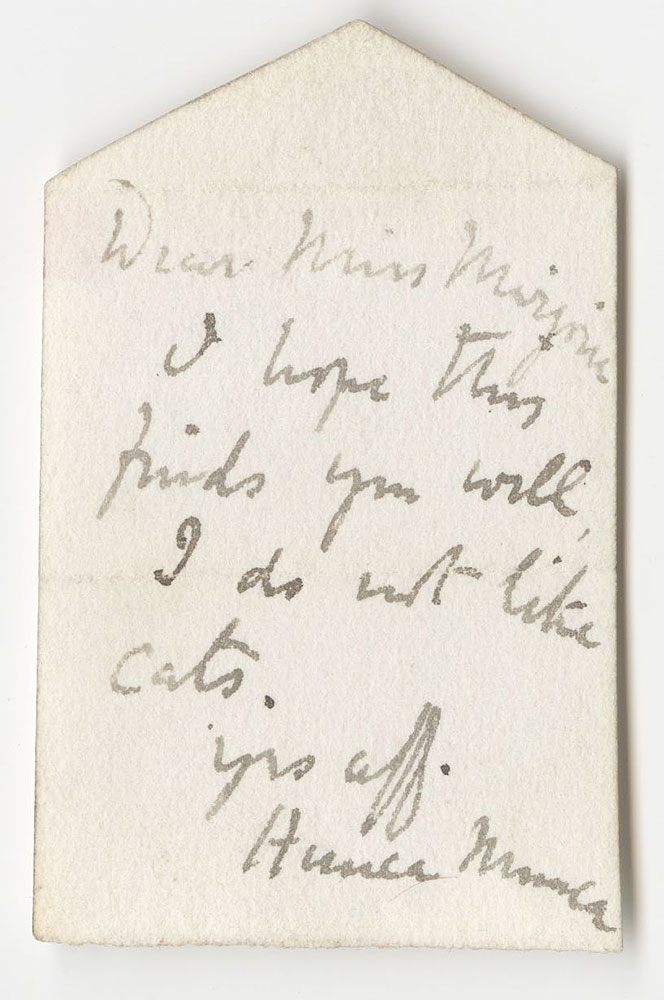 Dear Miss Marjorie
I hope this
finds you well,
I do not like
cats.
yrs aff.
Hunca Munca